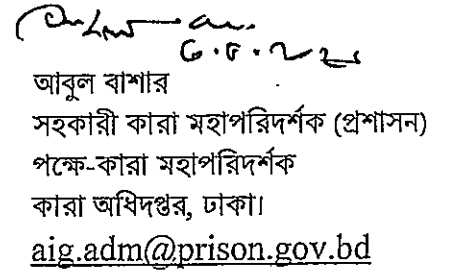 আবুল বাশার
সহকারী কারা মহাপরিদর্শক (প্রশাসন)
পক্ষে-কারা মহাপরিদর্শক
কারা অধিদপ্তর, ঢাকা।
aig.adm@prison.gov.bd